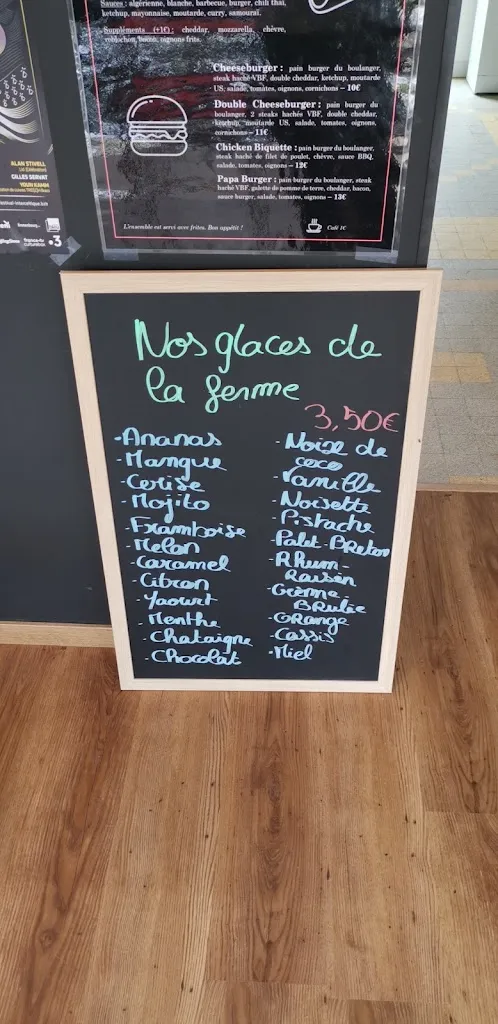 Sauces : algérienne, blanche, barbecue, burger, chili thaï,
ketchup, mayonnaise, moutarde, curry, samouraï.
Suppléments (+1€) : cheddar, mozzarella, chèvre,
reblochon, bacon, oignons frits.
Cheeseburger : pain burger du boulanger,
steak haché VBF, double cheddar, ketchup, moutarde
US, salade, tomates, oignons, cornichons – 10€
Double Cheeseburger : pain burger du
boulanger, 2 steaks hachés VBF, double cheddar,
ketchup, moutarde US, salade, tomates, oignons,
cornichons – 11€
Chicken Biquette : pain burger du boulanger,
steak haché de filet de poulet, chèvre, sauce BBQ,
salade, tomates, oignons – 12€
Papa Burger : pain burger du boulanger, steak
haché VBF, galette de pomme de terre, cheddar, bacon,
sauce burger, salade, tomates, oignons – 13€
L'ensemble est servi avec frites. Bon appétit !
Café 1€
ALAN STIVELL
GILLES SERVAT
YOUN KAMM
france•tv
3
Nos glaces de
la ferme
3,50€
-Ananas
-Mangue
-Cerise
-Mojito
-Framboise
-Melon
-Caramel
-Citron
-Yaourt
-Menthe
-Chataigne
-Chocolat
-Noix de
coco
-Vanille
-Noisette
-Pistache
-Palet-Breton
-Rhum-
Raisin
-Crème-
Brulée
-Orange
-Cassis
-Miel